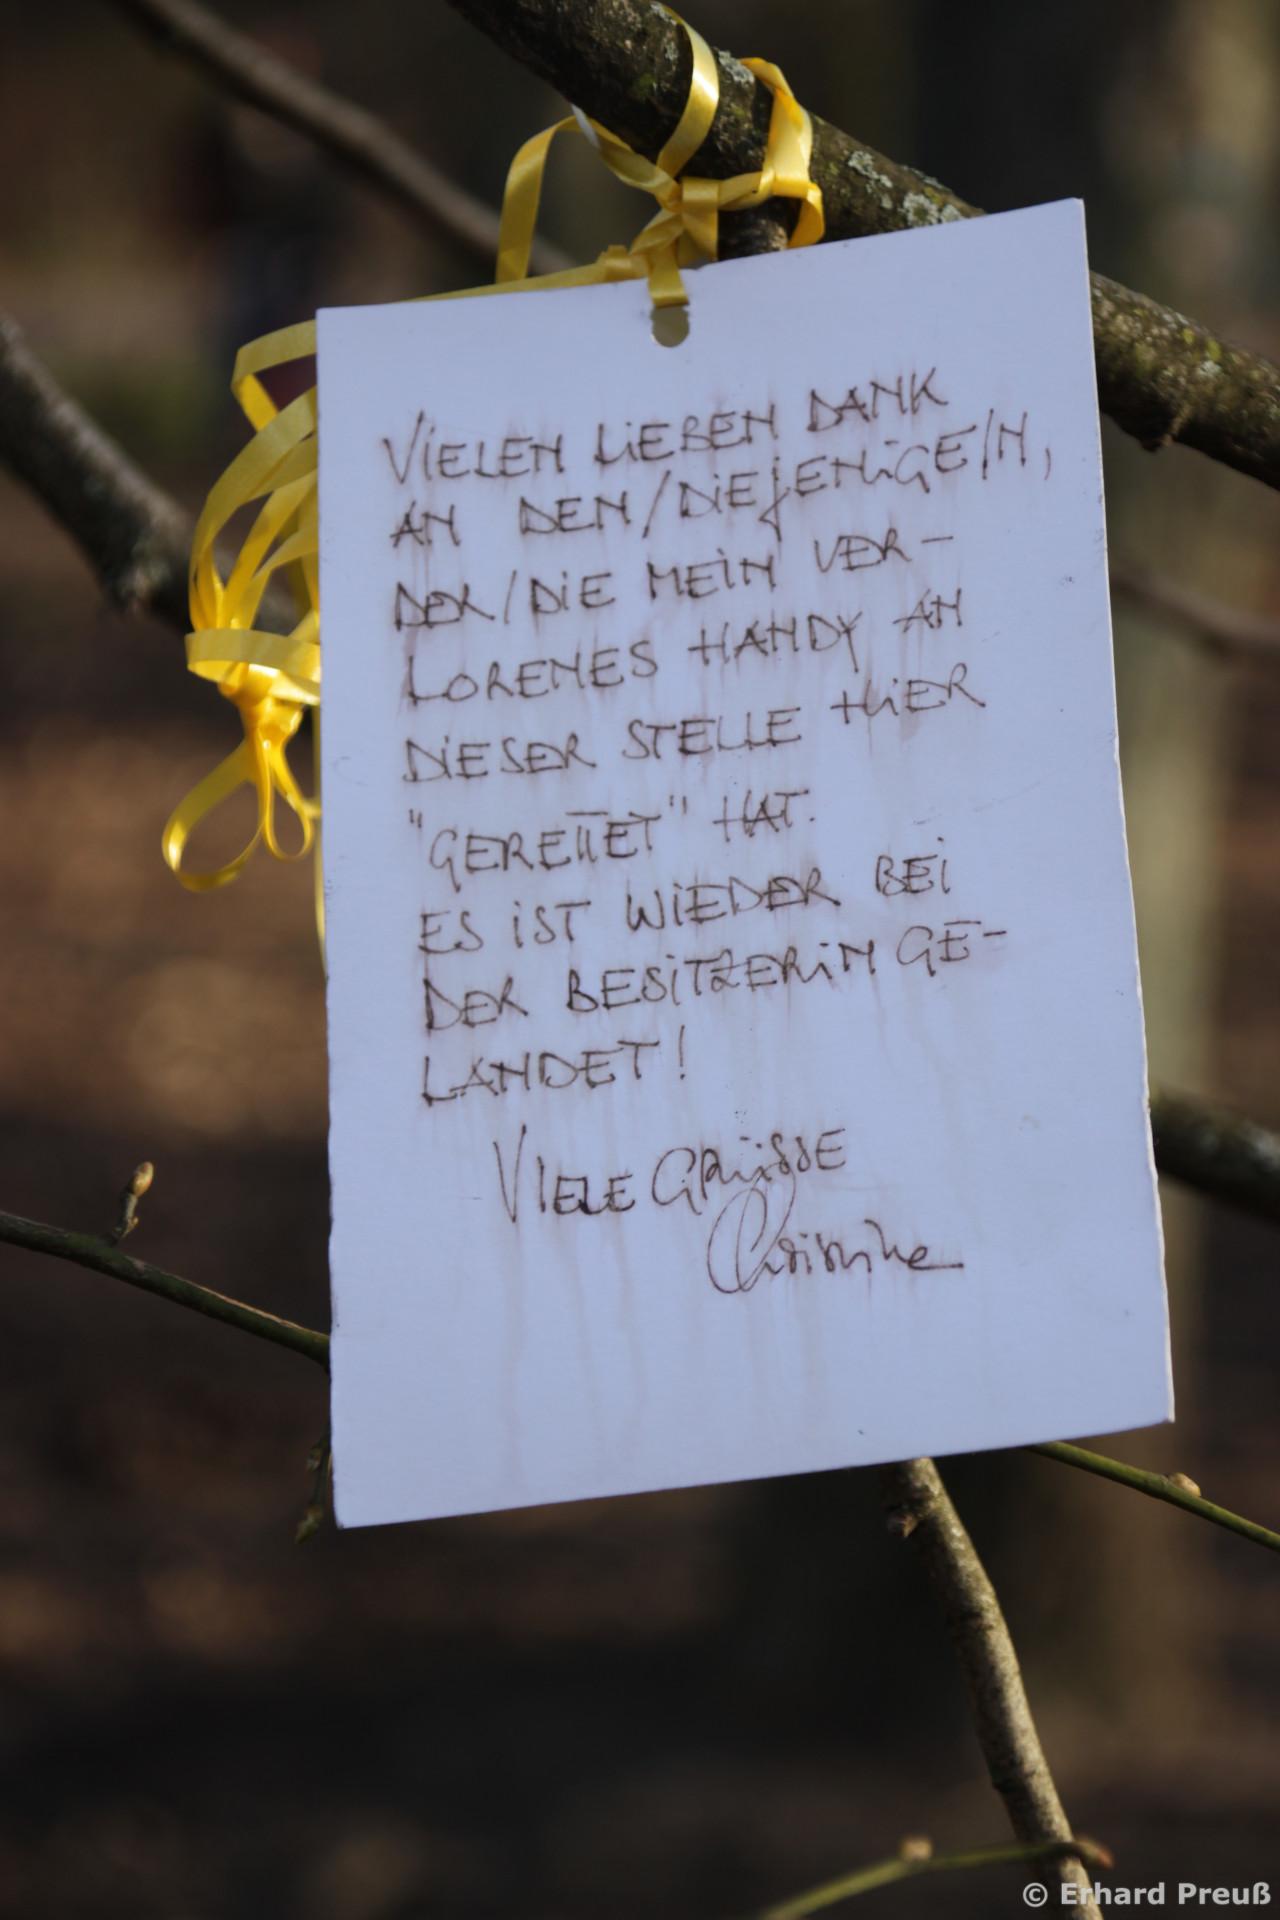 VIELEN LIEBEN DANK
AN DEN/DIEJENIGE/N,
DER/DIE MEIN VER-
LORENES HANDY AN
DIESER STELLE HIER
"GERETTET" HAT.
ES IST WIEDER BEI
DER BESITZERIN GE-
LANDET!
VIELE GRÜSSE
Christine
© Erhard Preuß